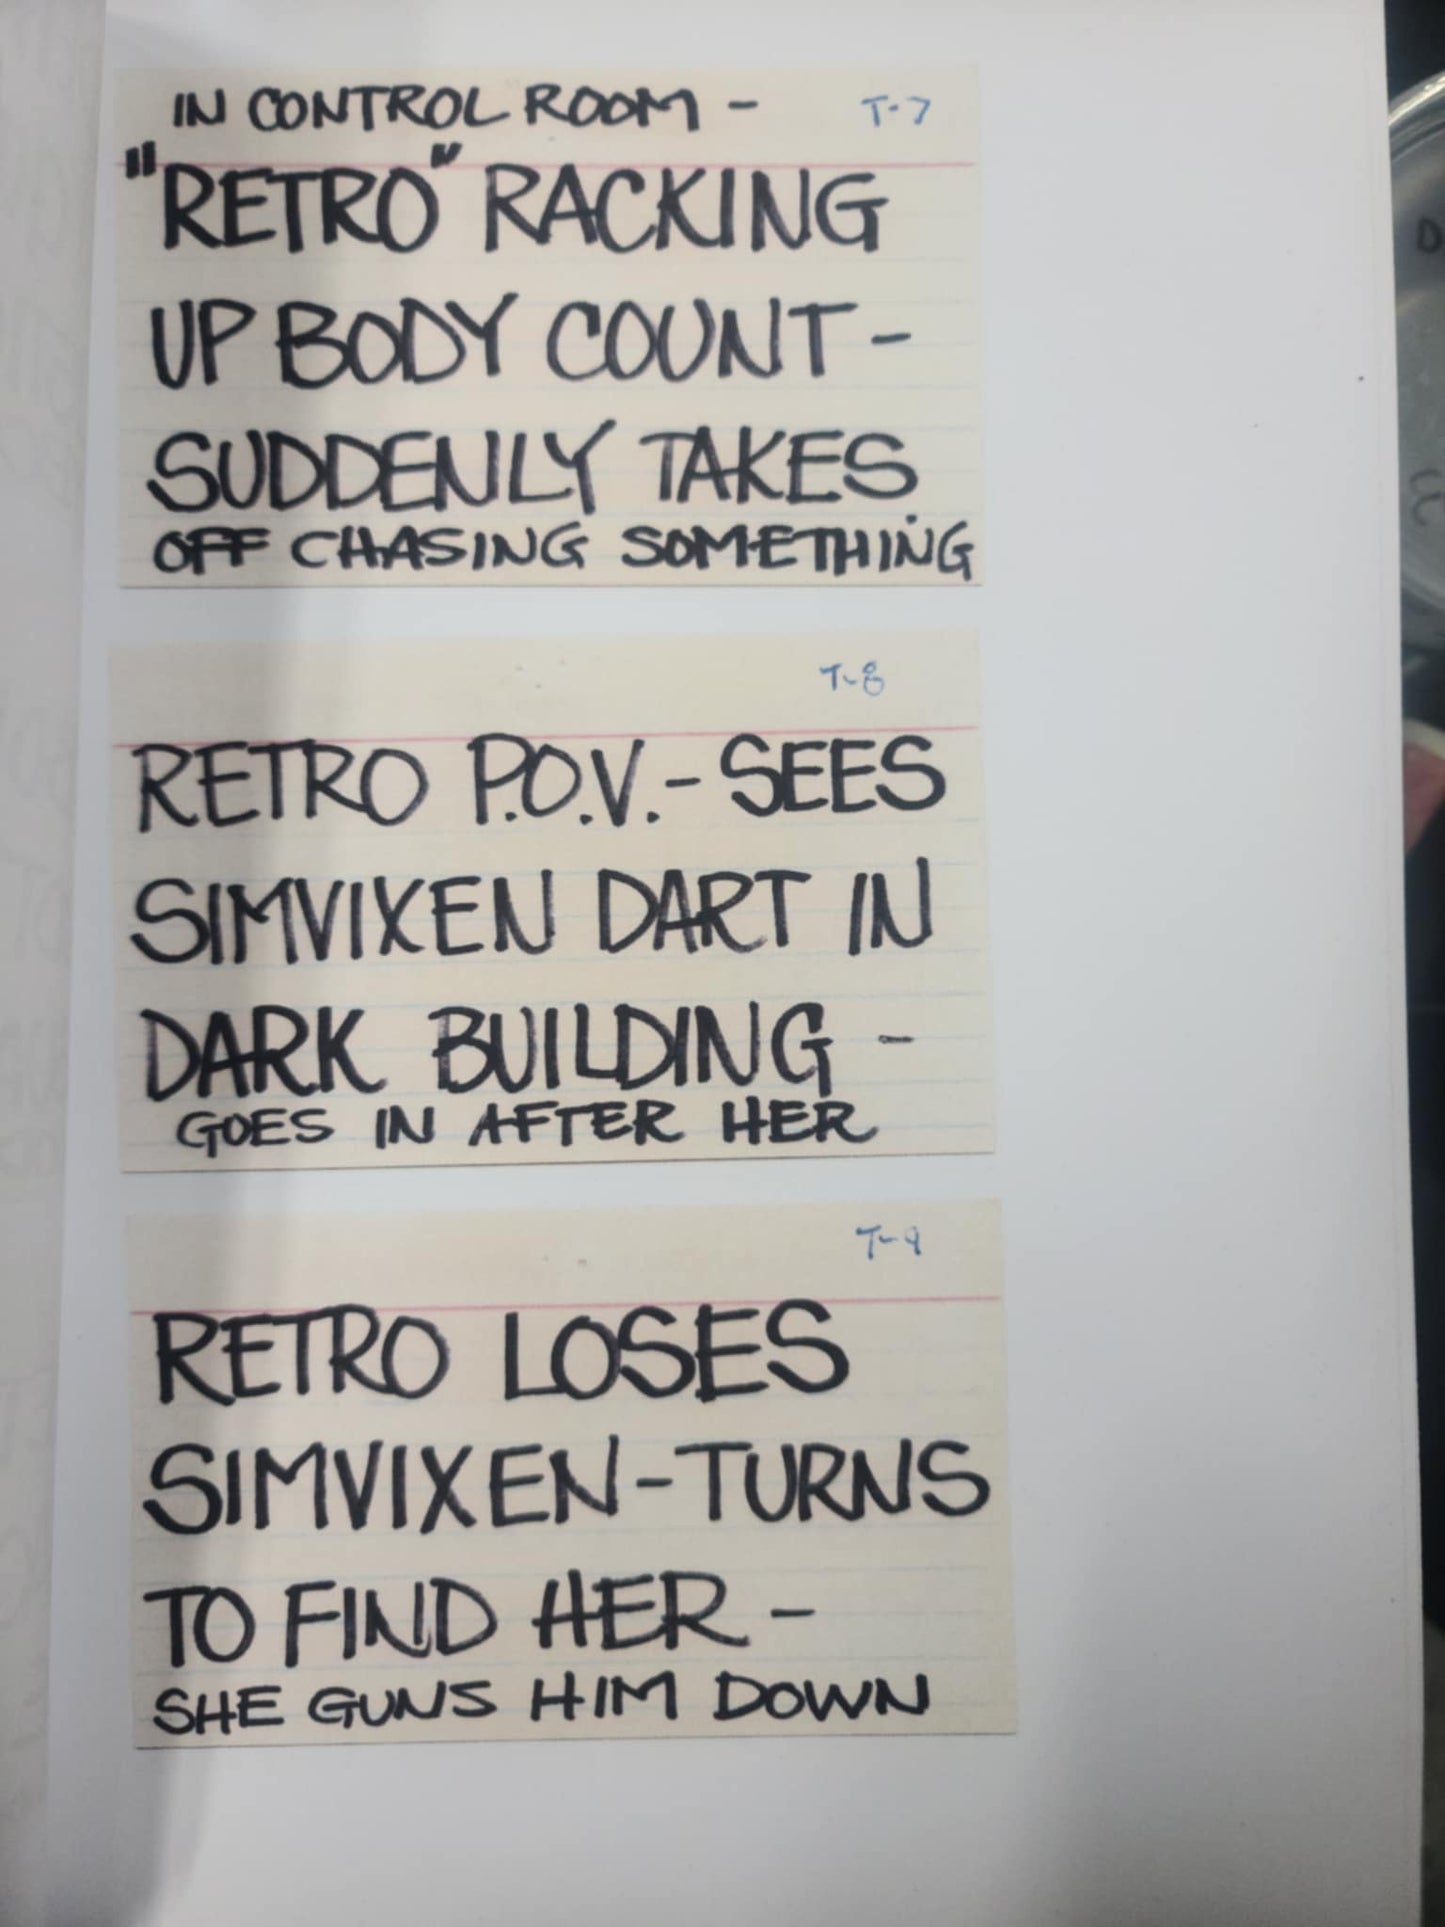 IN CONTROL ROOM - T-7
"RETRO" RACKING
UP BODY COUNT -
SUDDENLY TAKES
OFF CHASING SOMETHING
T-8
RETRO P.O.V. - SEES
SIMVIXEN DART IN
DARK BUILDING -
GOES IN AFTER HER
T-9
RETRO LOSES
SIMVIXEN - TURNS
TO FIND HER -
SHE GUNS HIM DOWN